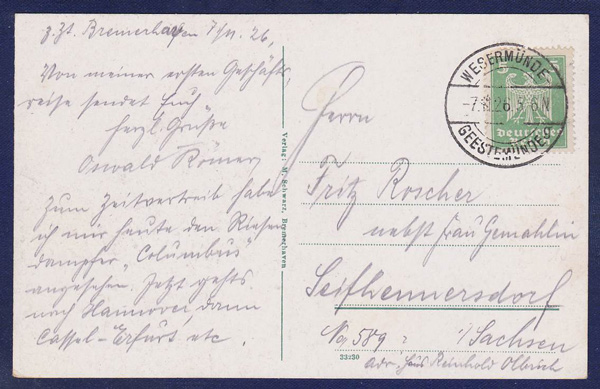 z. Zt. Bremerhaven 7/11. 26,
Von meiner ersten Geschäfts-
reise sendet Euch
herzl. Grüße
Oswald Römer
Zum Zeitvertreib habe
ich mir heute den Riesen
dampfer "Columbus"
angesehen. Jetzt gehts
nach Hannover, dann
Cassel-Erfurt, etc.
Verlag: M. Schwarz, Bremerhaven
WESERMÜNDE
-7. 26. 5-6 N
GEESTEMÜNDE
5
Deutsches
Herrn
Fritz Roscher
nebst Frau Gemahlin
Seifhennersdorf
No, 589 i/Sachsen
23230
adr. Haus Reinhold Olbrich